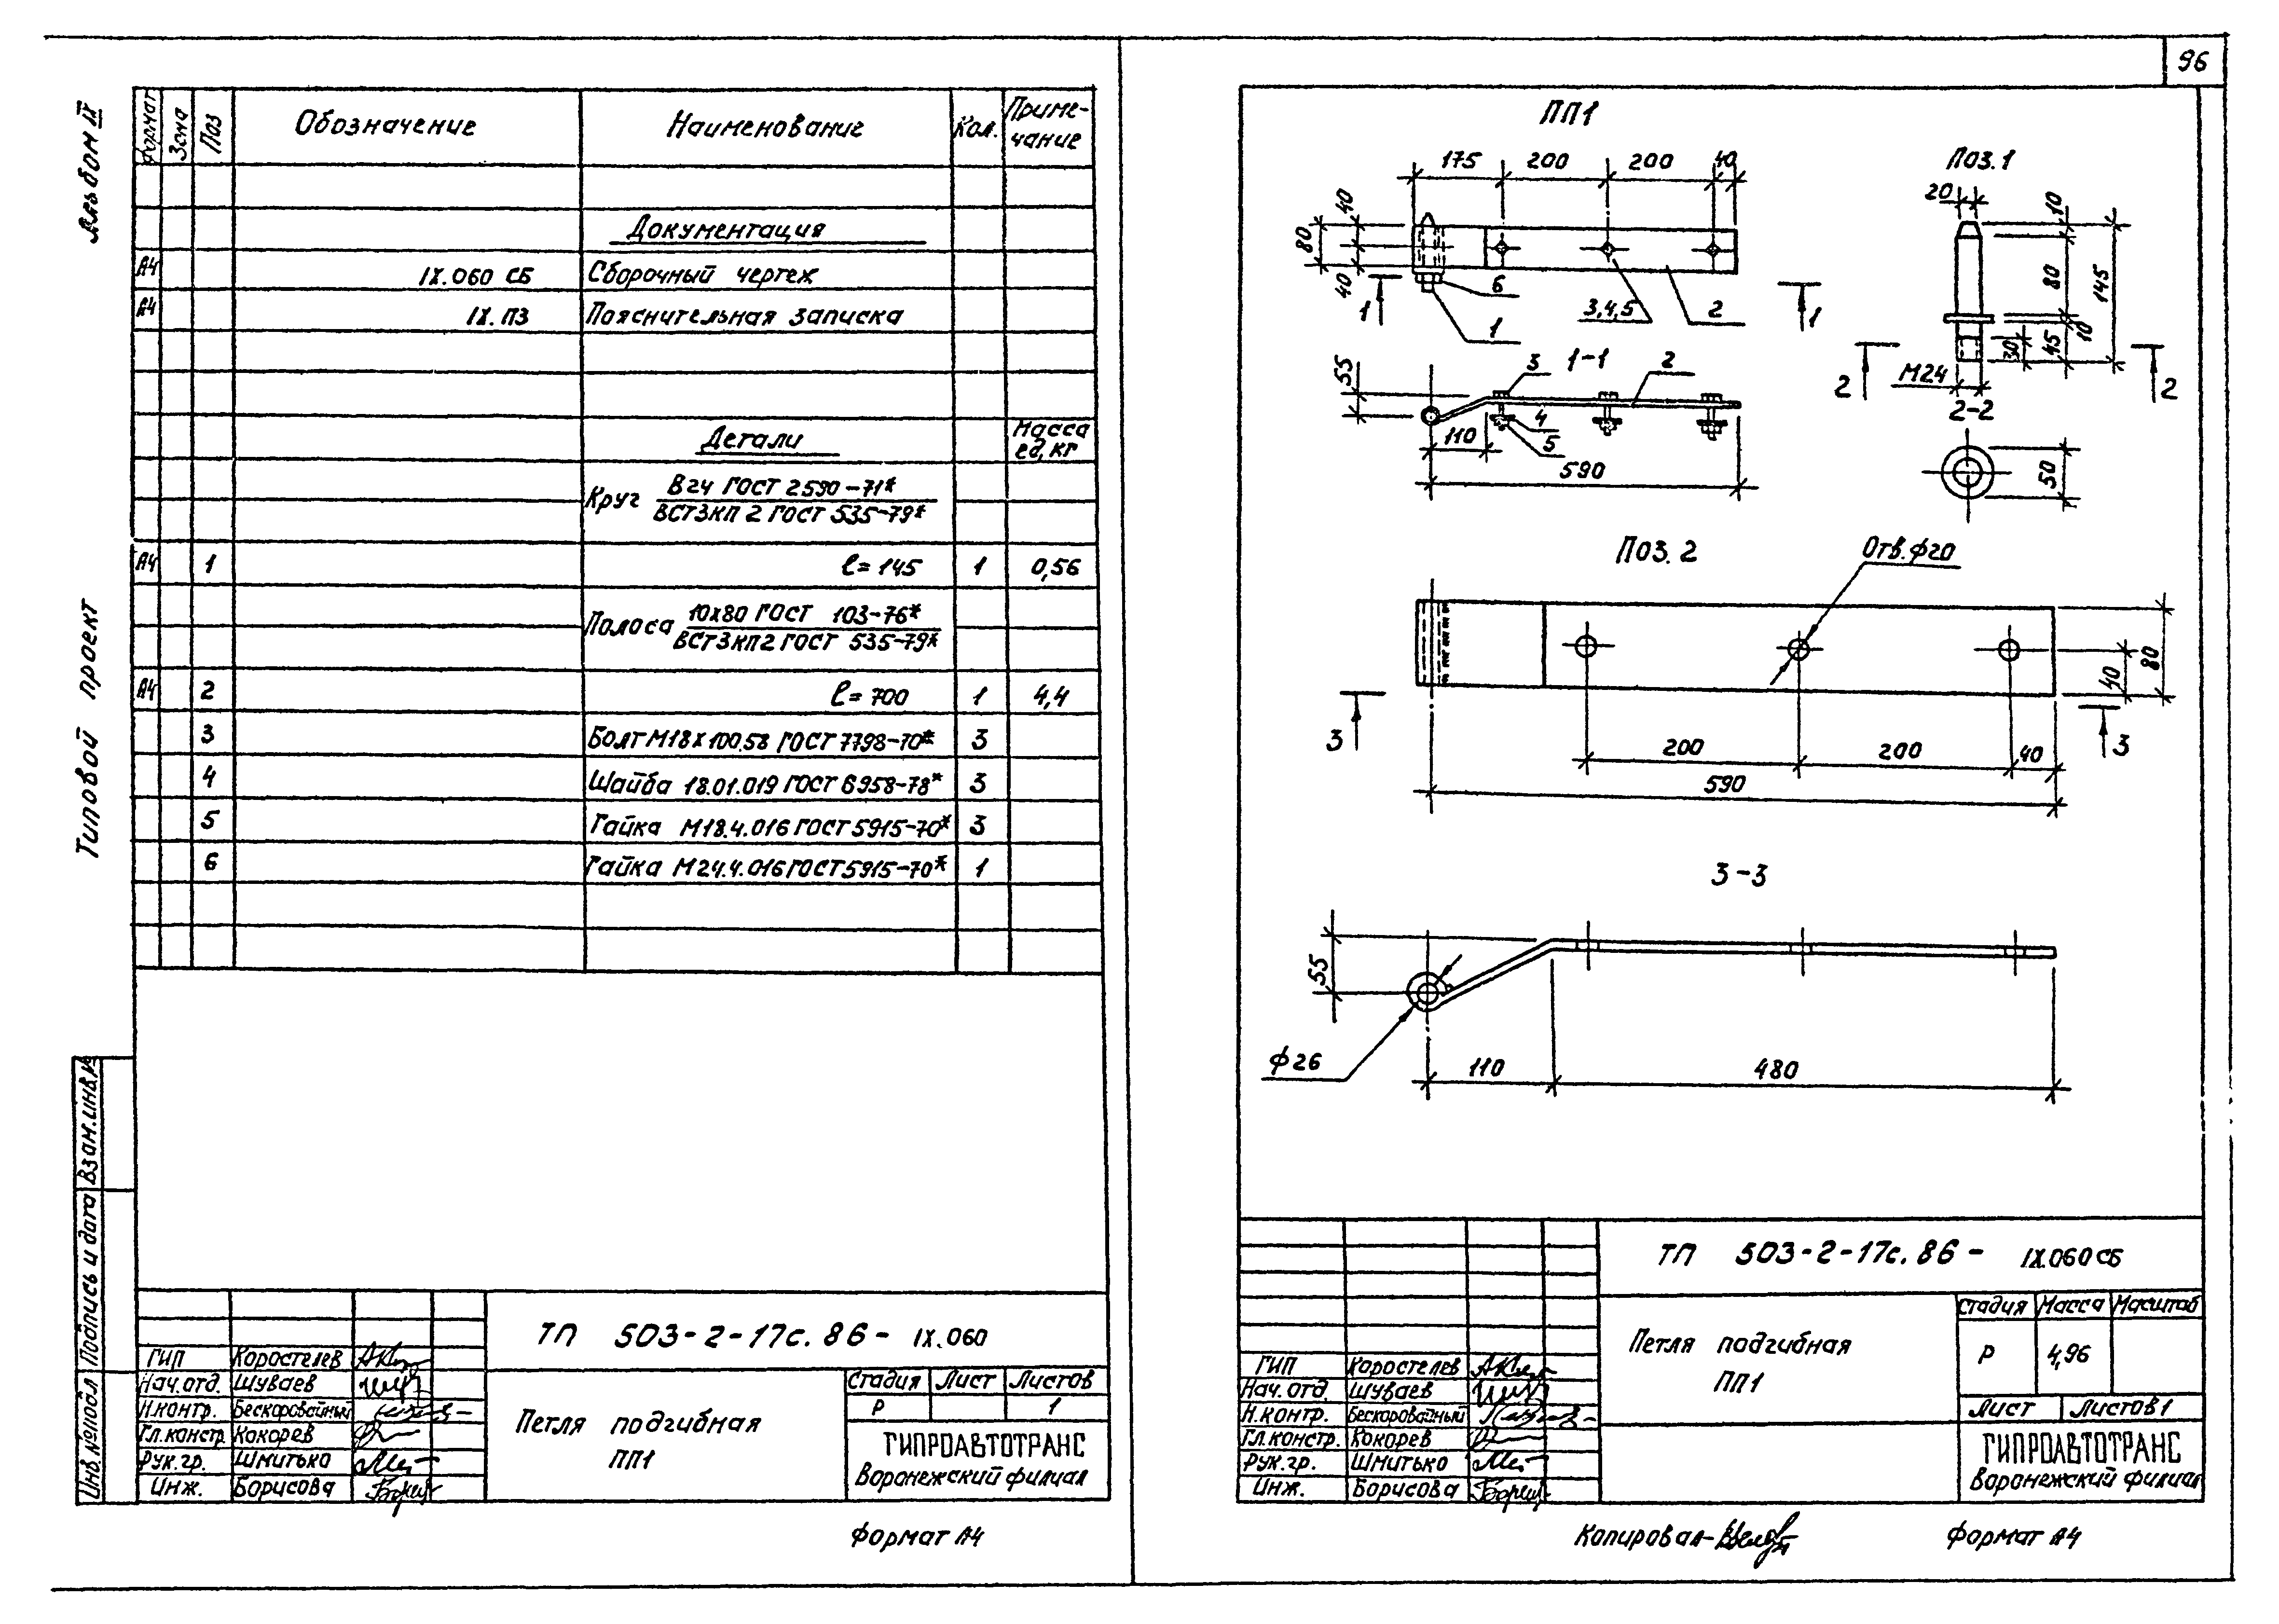 96
Альбом IX
Типовой проект
Формат Зона Поз Обозначение Наименование Кол. Приме-
чание
Документация
А4 IX.060 СБ Сборочный чертеж
А4 IX. ПЗ Пояснительная записка
Детали Масса
ед, кг
Круг В24 ГОСТ 2590-71*
ВСТ3КП 2 ГОСТ 535-79*
А4 1 ℓ=145 1 0,56
Полоса 10х80 ГОСТ 103-76*
ВСТ3КП2 ГОСТ 535-79*
А4 2 ℓ=700 1 4,4
3 Болт М18х100.58 ГОСТ 7798-70* 3
4 Шайба 18.01.019 ГОСТ 6958-78* 3
5 Гайка М18.4.016 ГОСТ 5915-70* 3
6 Гайка М24.4.016 ГОСТ 5915-70* 1
Взам.инв.№
Подпись и дата
Инв.№подл
ТП 503-2-17с.86- IX.060
ГИП Коростелев
Нач.отд. Шуваев
Н.контр. Бескоровайный
Гл.констр. Кокорев
Рук.гр. Шмитько
Инж. Борисова
Петля подгибная
ПП1
Стадия Лист Листов
Р 1
ГИПРОАВТОТРАНС
Воронежский филиал
Формат А4
ПП1
175 200 200 40
80 40 40
6
1 1
1 3,4,5 2
1-1
55 3 2
4
5
110
590
Поз.1
20 10
80 145
10
30 45
М24
2 2
2-2
50
Поз. 2
Отв.ф20
40 80
3 3
200 200 40
590
3-3
55
ф26
110 480
ТП 503-2-17с.86- IX.060СБ
ГИП Коростелев
Нач.отд. Шуваев
Н.контр. Бескоровайный
Гл.констр. Кокорев
Рук.гр. Шмитько
Инж. Борисова
Петля подгибная
ПП1
Стадия Масса Масштаб
Р 4,96
Лист Листов 1
ГИПРОАВТОТРАНС
Воронежский филиал
Копировал-
Формат А4